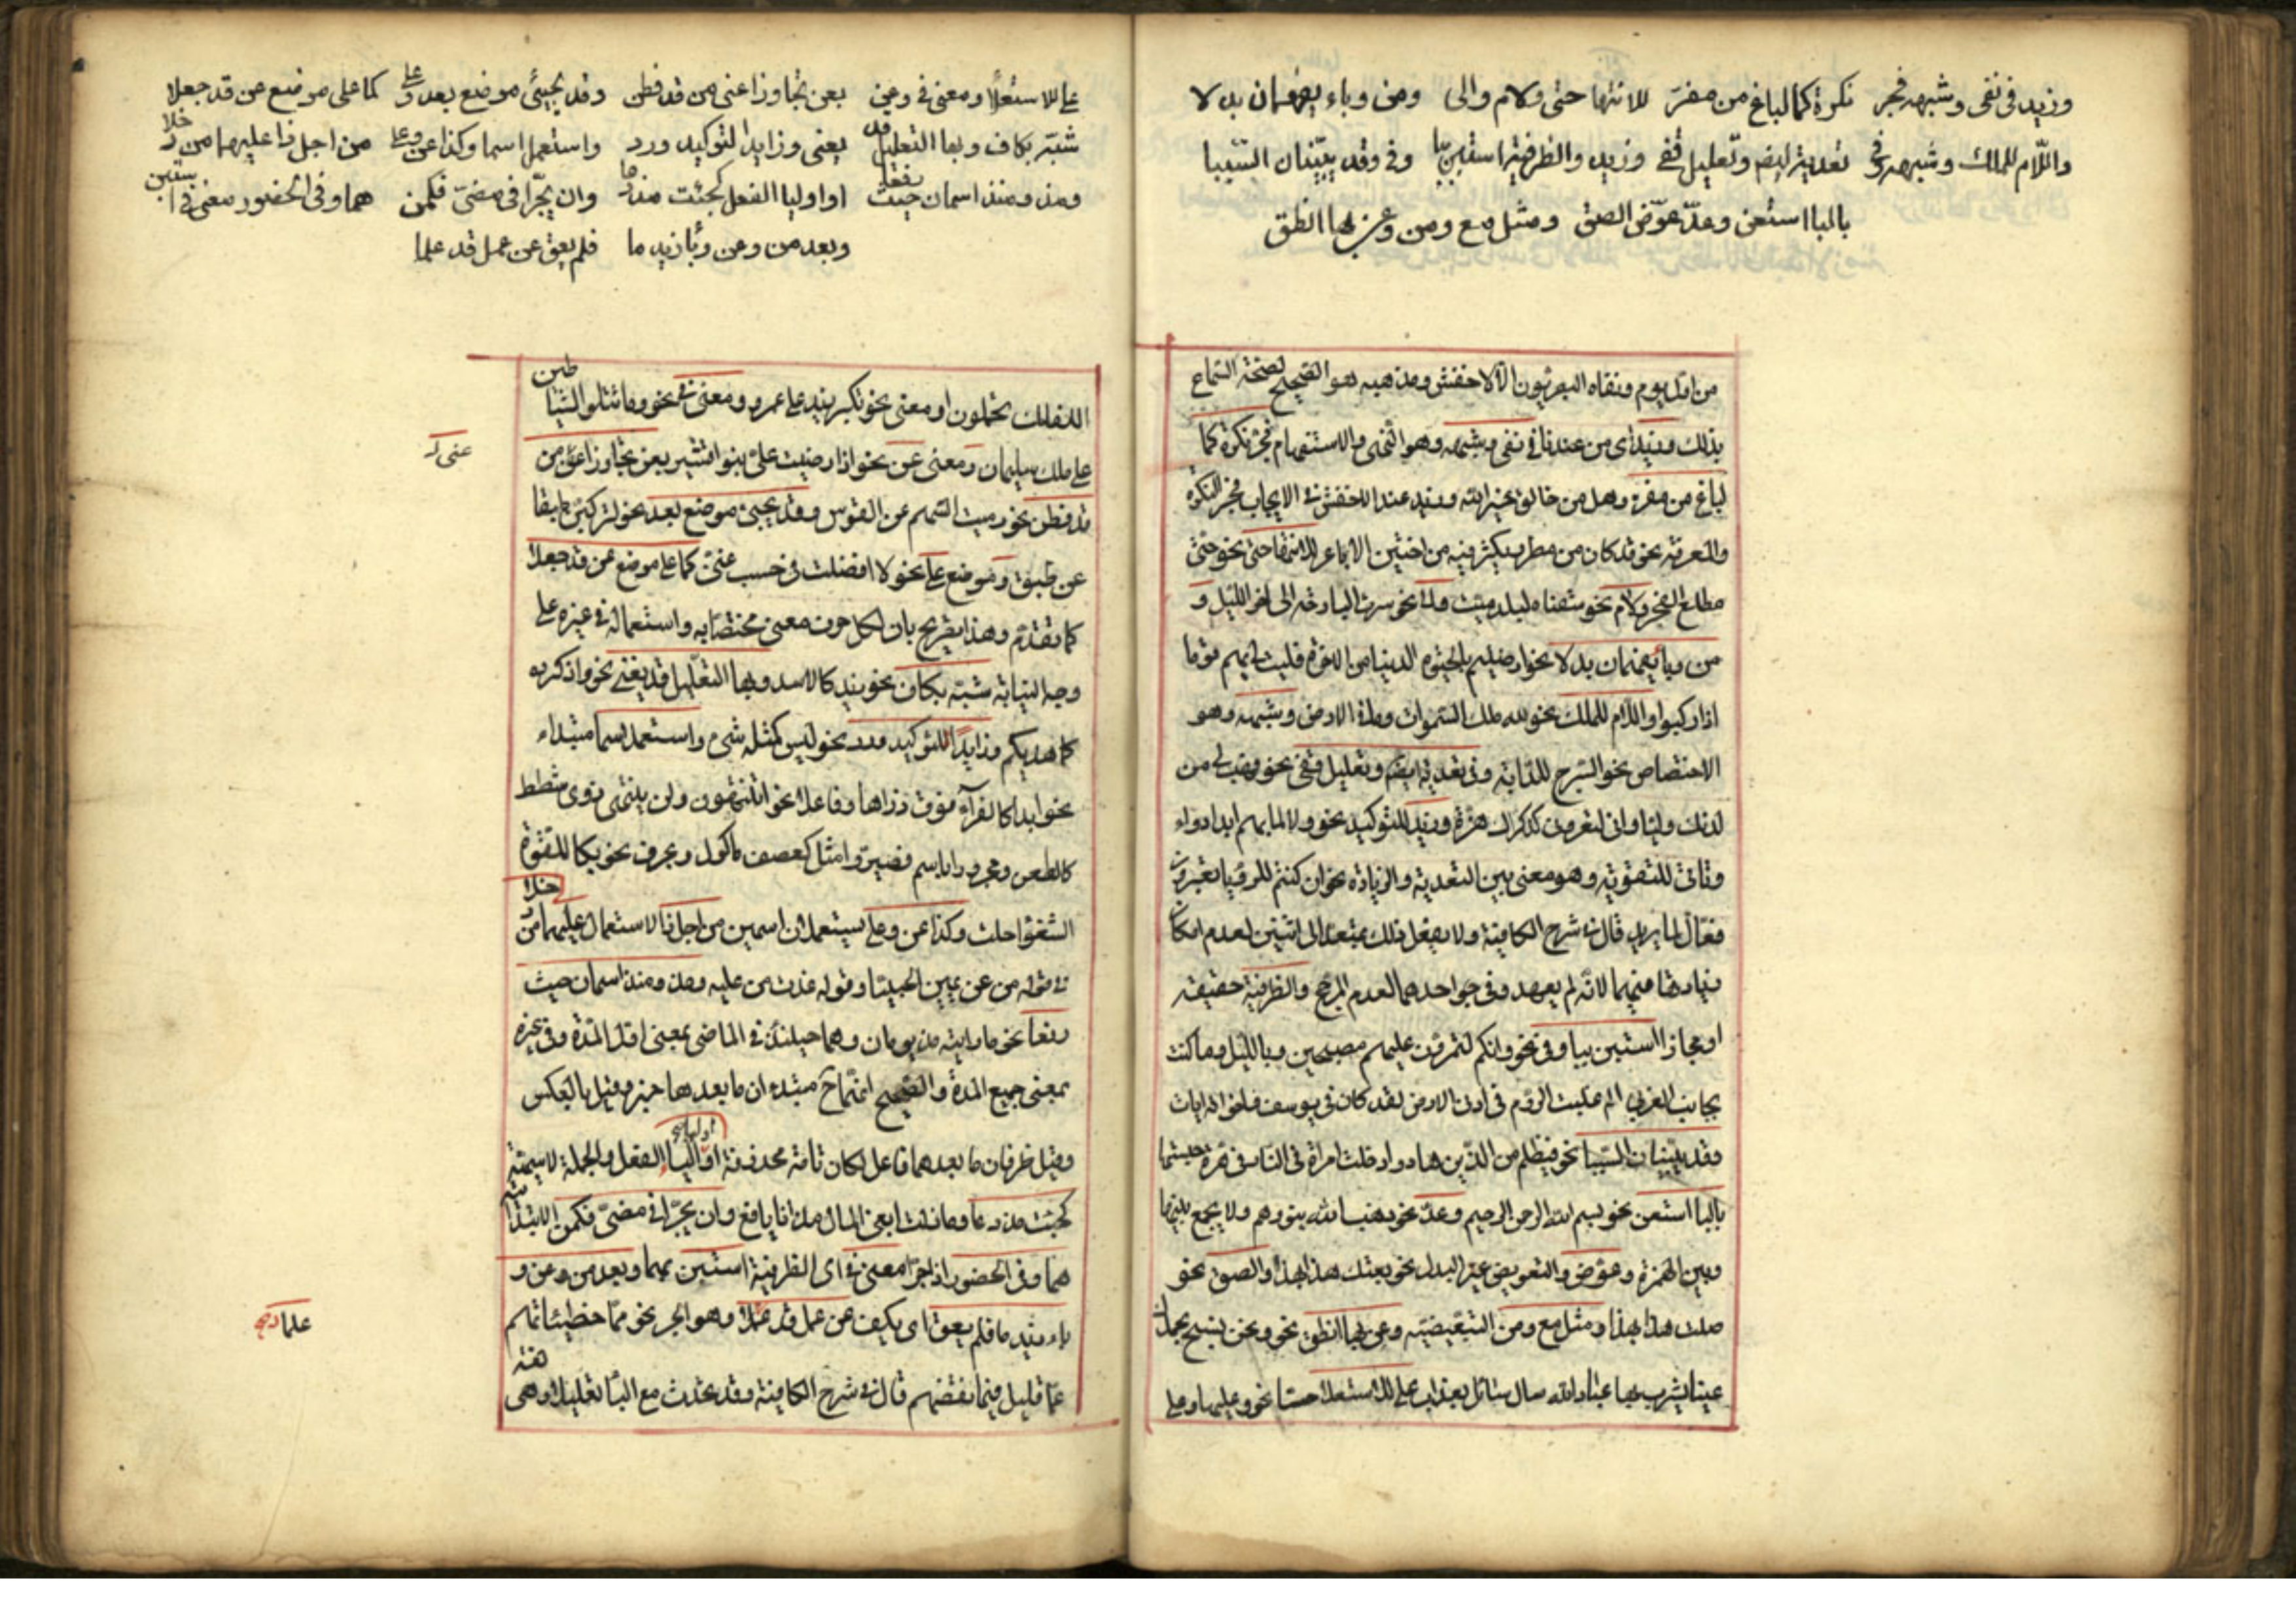 وزيد في نفى وشبهه فجر نكرة كما لباغ من مفر للانتها حتى ولام والى ومن وباء يفهمان بدلا
واللام للملك وشبهه وفى تعدية ايضم وتعليل قفى وزيد والظرفية استبن ببا وفى وقد يبينان السببا
بالبا استعن وعد عوض الصق ومثل مع ومن وعن بها انطق
من اول يوم ونفاه البصريون الا الاخفش ومذهبه هو الصحيح لصحة السماع
بذلك وزيد اى من عندنا فى نفى وشبهه وهو النهى والاستفهام فجر نكرة كما
لباغ من مفر وهل من خالق غير الله وزيد عند الاخفش فى الايجاب فجر النكرة
والمعرفة نحو قد كان من مطر يكثر فيه من حنين الاباعر للانتها حتى نحو حتى
مطلع الفجر ولام نحو سقناه لبلد ميت والى نحو سرت البارحة الى اخر الليل و
من وبا يفهمان بدلا نحو ارضيتم بالحيوة الدنيا من الاخرة فليت لى بهم قوما
اذا ركبوا واللام للملك نحو لله ملك السموات والارض وشبهه وهو
الاختصاص نحو السرج للدابة وفى تعدية ايضم وتعليل قفى نحو فهب لى من
لدنك وليا وانى لتعرونى لذكراك هزة وزيد للتوكيد نحو ولا للما بهم ابدا دواء
وتاتى للتقوية وهو معنى بين التعدية والزيادة نحو ان كنتم للرؤيا تعبرون
فعال لما يريد قال فى شرح الكافية ولا يفعل ذلك بمتعد الى اثنين لعدم امكان
زيادتها فيهما لانه لم يعهد وفى احدهما لعدم المرجح والظرفية حقيقة
او مجازا استبن ببا وفى نحو وانكم لتمرون عليهم مصبحين وبالليل وما كنت
بجانب الغربى الم غلبت الروم فى ادنى الارض لقد كان فى يوسف واخوته ايات
وقد يبينان السببا نحو فبظلم من الذين هادوا دخلت امراة النار فى هرة حبستها
بالبا استعن نحو بسم الله الرحمن الرحيم وعد نحو ذهب الله بنورهم ولا يجمع بينها
وبين الهمزة وعوض والتعويض غير البدل نحو بعتك هذا بهذا والصق نحو
وصلت هذا بهذا ومثل مع ومن التبعيضية وعن بها انطق نحو ونحن نسبح بحمدك
عينا يشرب بها عباد الله سال سائل بعذاب على للاستعلا حسا نحو وعليها وعلى
على للاستعلا ومعنى فى وعن بعن تجاوزا عنى من قد فطن وقد يجيئ موضع بعد وعلى كما على موضع عن قد جعلا
شبه بكاف وبها التعليل قد يعنى وزايدا لتوكيد ورد واستعمل اسما وكذا عن وعلى من اجل ذا عليهما من دخلا
ومذ ومنذ اسمان حيث رفعا او اوليا الفعل كجئت مذ دعا وان يجرا فى مضى فكمن هما وفى الحضور معنى فى استبن
وبعد من وعن وبا زيد ما فلم يعق عن عمل قد علما
الفلك تحملون او معنى نحو تكبر زيد على عمرو ومعنى فى نحو وما تتلو الشياطين
على ملك سليمان ومعنى عن نحو اذا رضيت على بنو قشير بعن تجاوزا عنى من
عنى
قد فطن نحو رميت السهم عن القوس وقد يجيئ موضع بعد نحو لتركبن طبقا
عن طبق وموضع على نحو لا افضلت فى حسب عنى كما على موضع عن قد جعلا
كما تقدم وهذا تصريح بان لكل حرف معنى مختصا به واستعماله فى غيره على
وجه النيابة شبه بكاف نحو زيد كالاسد وبها التعليل قد يعنى نحو واذكروه
كما هديكم وزايدا للتوكيد ورد نحو ليس كمثله شىء واستعمل اسما مبتداء
نحو ابدا كالفراء فوق ذراها وفاعلا نحو اتنتهون ولن ينهى ذوى شطط
كالطعن ومجرورا باسم فصيروا مثل كعصف ماكول وبحرف نحو بكا للقوة
الشغوا جلت وكذا عن وعلى يستعملان اسمين من اجل ذا الاستعمال عليهما من دخلا
فى قوله من عن يمين الحبيا وقوله غدت من عليه ومذ ومنذ اسمان حيث
رفعا نحو ما رايته مذ يومان وهما حينئذ فى الماضى بمعنى اول المدة وفى غيره
بمعنى جميع المدة والصحيح انهما ح مبتدء ان ما بعدهما خبر وقيل بالعكس
وقيل ظرفان ما بعدهما فاعل لكان تامة محذوفة او اوليا الفعل والجملة الاسمية
كجئت مذ دعا وما زلت ابغى المال مذ انا يافع وان يجرا فى مضى فكمن الابتدائية
هما وفى الحضور اذا جرا معنى فى اى الظرفية استبن بهما وبعد من وعن و
باء زيد ما فلم يعق اى يكف عن عمل قد علما وهو الجر نحو مما خطيئاتهم
علما
عما قليل فبما نقضهم قال فى شرح الكافية وقد تحدث مع البا تقليلا وهى